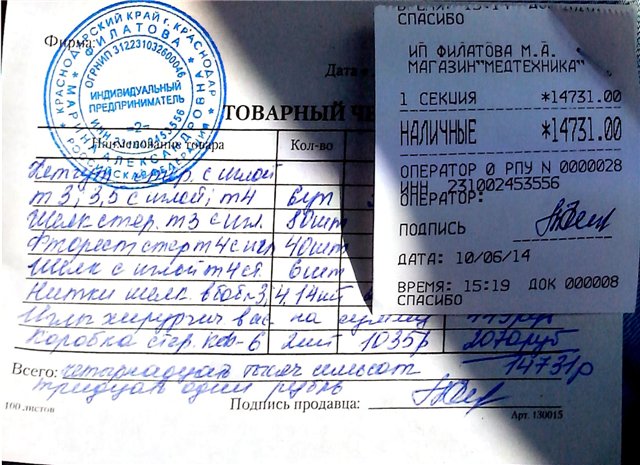 СПАСИБО
ИП ФИЛАТОВА М.А.
МАГАЗИН"МЕДТЕХНИКА"
1 СЕКЦИЯ *14731.00
НАЛИЧНЫЕ *14731.00
ОПЕРАТОР 0 РПУ N 0000028
ИНН 231002453556
ОПЕРАТОР:
ПОДПИСЬ
ДАТА: 10/06/14
ВРЕМЯ: 15:19 ДОК 000008
СПАСИБО
Фирма
КРАСНОДАРСКИЙ КРАЙ г. КРАСНОДАР
ФИЛАТОВА
МАРИНА АЛЕКСАНДРОВНА
ОГРНИП 312231032600046
ИНДИВИДУАЛЬНЫЙ
ПРЕДПРИНИМАТЕЛЬ
-2-
ИНН 231002453556
РОССИЙСКАЯ ФЕДЕРАЦИЯ
Дата
ТОВАРНЫЙ
Наименование товара Кол-во
с иглой
т 3; 3,5 с иглой; т4 6уп
Шелк стер. т3 с игл. 80шт
стер т4 с игл 40шт
Шелк с иглой т4 ст. 6шт
Нитки шелк. 3,4. 14шт
Иглы хирургич вас на сумму
Коробка стер. 6 2шт 1035р 2070руб
Всего: четырнадцать тысяч семьсот 14731р
тридцать один рубль
100 листов Подпись продавца: Арт. 130015